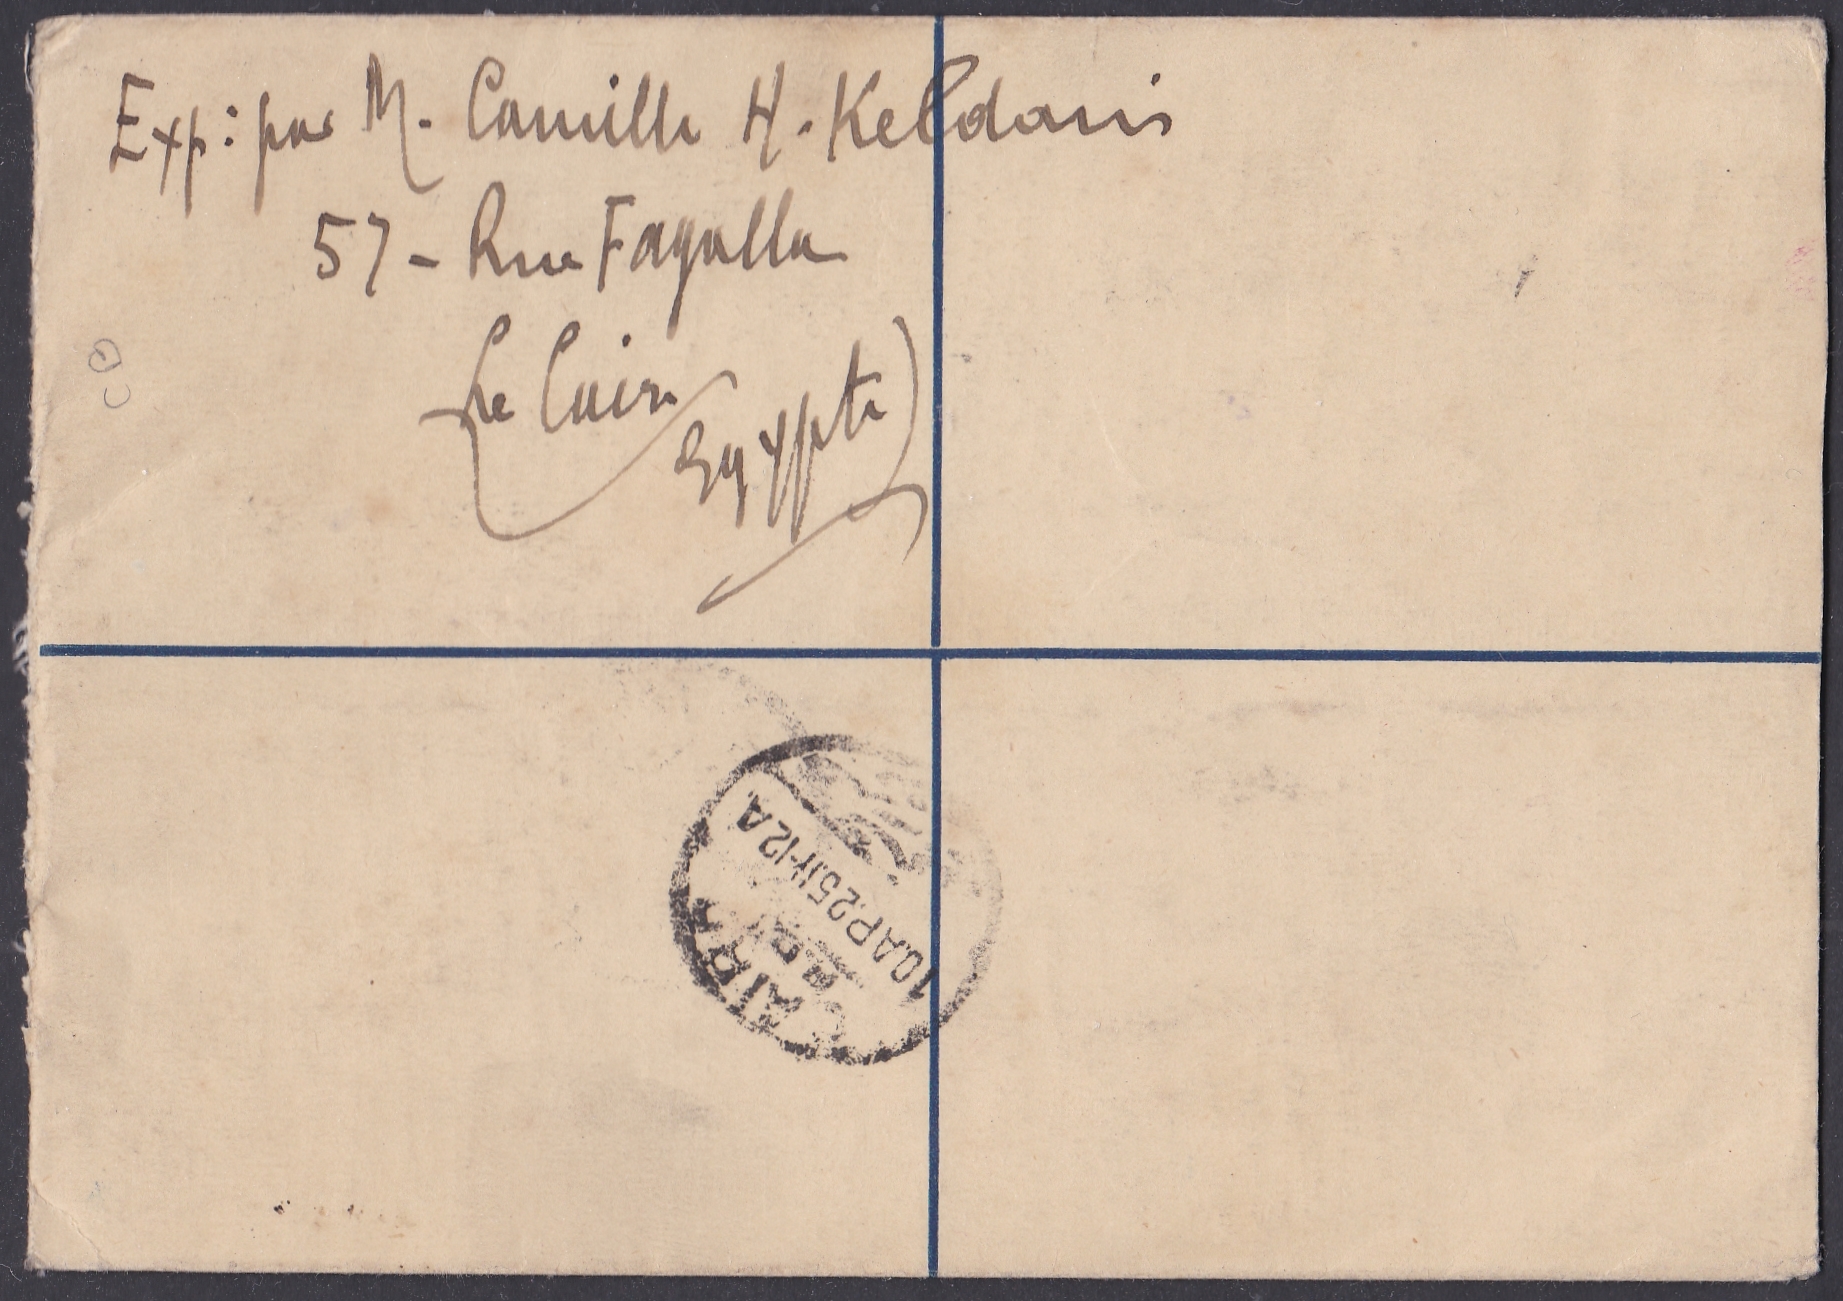 Exp: par M. Camille H. Keldani
57 - Rue Fagalla
Le Caire
Egypte)
CAIRO
10.AP.25.11-12A